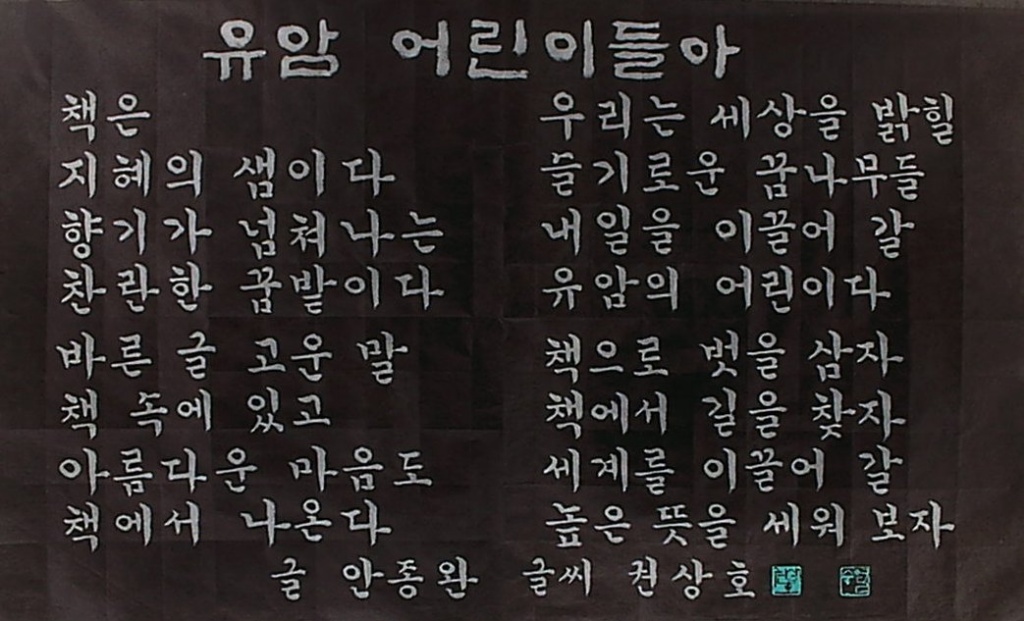 유암 어린이들아
책은
지혜의 샘이다
향기가 넘쳐나는
찬란한 꿈밭이다
바른 글 고운 말
책 속에 있고
아름다운 마음도
책에서 나온다
우리는 세상을 밝힐
슬기로운 꿈나무들
내일을 이끌어 갈
유암의 어린이다
책으로 벗을 삼자
책에서 길을 찾자
세계를 이끌어 갈
높은 뜻을 세워 보자
글 안종완 글씨 권상호